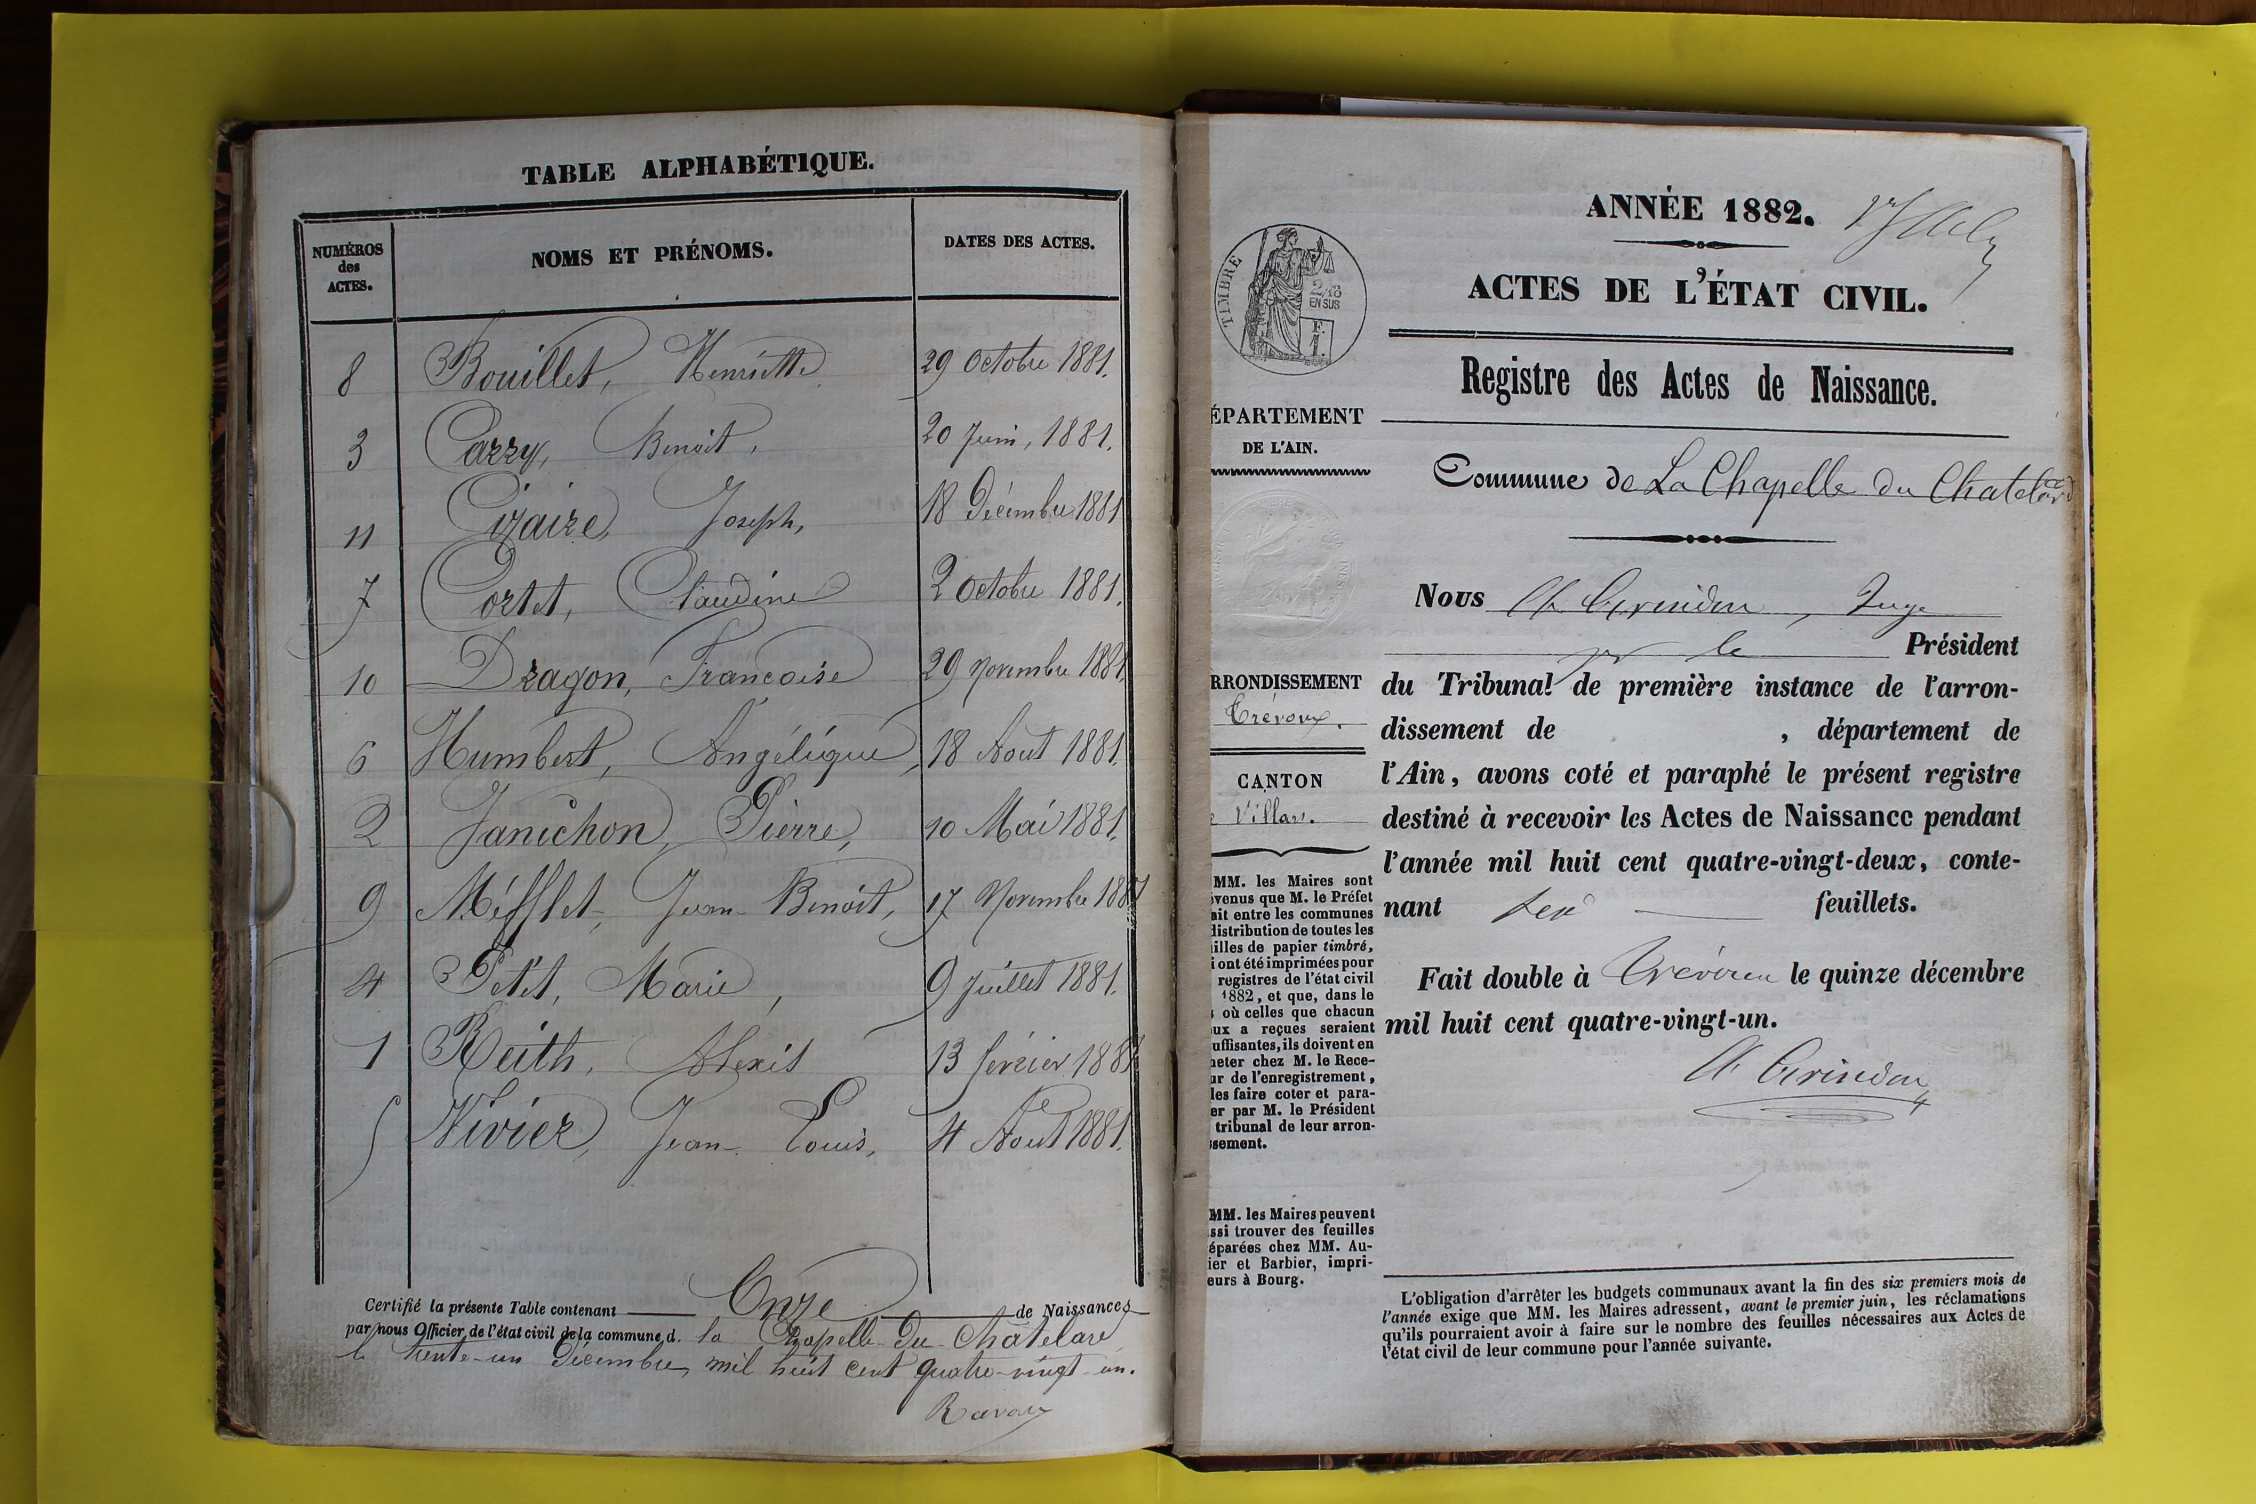 TABLE ALPHABÉTIQUE.
NUMÉROS
des
ACTES.
NOMS ET PRÉNOMS.
DATES DES ACTES.
8 Bouillet, Henriette 29 Octobre 1881.
3 Carry, Benoit, 20 Juin, 1881.
11 Cizaire, Joseph, 18 Décembre 1881
7 Cortet, Claudine 2 Octobre 1881.
10 Dragon, Françoise 29 Novembre 1881.
6 Humbert, Angélique, 18 Aout 1881.
2 Janichon, Pierre, 10 Mai 1881.
9 Méfflet, Jean-Benoit, 17 Novembre 1881
4 Petit, Marie, 9 Juillet 1881.
1 Reith, Alexis 13 février 1881
5 Vivier, Jean-Louis, 4 Aout 1881.
Certifié la présente Table contenant Onze de Naissances
par nous Officier de l'état civil de la commune d. la Chapelle-du-Châtelard
le trente-un Décembre, mil huit cent quatre-vingt-un.
ANNÉE 1882.
ACTES DE L'ÉTAT CIVIL.
TIMBRE
2/10
EN SUS
F.
1.
Registre des Actes de Naissance.
ÉPARTEMENT
DE L'AIN.
Commune de La Chapelle du Chatelard
Nous Juge
pr le Président
RRONDISSEMENT
Trévoux.
du Tribunal de première instance de l'arron-
dissement de , département de
CANTON
Villars.
l'Ain, avons coté et paraphé le présent registre
destiné à recevoir les Actes de Naissance pendant
l'année mil huit cent quatre-vingt-deux, conte-
nant six feuillets.
Fait double à Trévoux le quinze décembre
mil huit cent quatre-vingt-un.
MM. les Maires sont
venus que M. le Préfet
ait entre les communes
distribution de toutes les
illes de papier timbré,
i ont été imprimées pour
registres de l'état civil
1882, et que, dans le
où celles que chacun
ux a reçues seraient
uffisantes, ils doivent en
heter chez M. le Rece-
ur de l'enregistrement,
les faire coter et para-
er par M. le Président
tribunal de leur arron-
ssement.
MM. les Maires peuvent
ssi trouver des feuilles
éparées chez MM. Au-
ier et Barbier, impri-
eurs à Bourg.
L'obligation d'arrêter les budgets communaux avant la fin des six premiers mois de
l'année exige que MM. les Maires adressent, avant le premier juin, les réclamations
qu'ils pourraient avoir à faire sur le nombre des feuilles nécessaires aux Actes de
l'état civil de leur commune pour l'année suivante.